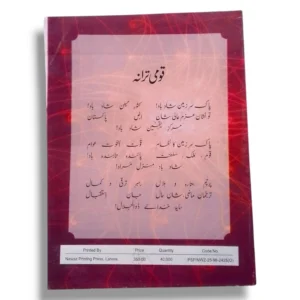 قومی ترانہ
پاک سرزمین شاد باد کشور حسین شاد باد
تو نشان عزم عالی شان ارض پاکستان
مرکز یقین شاد باد
پاک سرزمین کا نظام قوت اخوت عوام
قوم ملک سلطنت پائندہ تابندہ باد
شاد باد منزل مراد
پرچم ستارہ و ہلال رہبر ترقی و کمال
ترجمان ماضی شان حال جان استقبال
سایۂ خدائے ذوالجلال
Printed By Price Quantity Code No.
Printing Press, Lahore